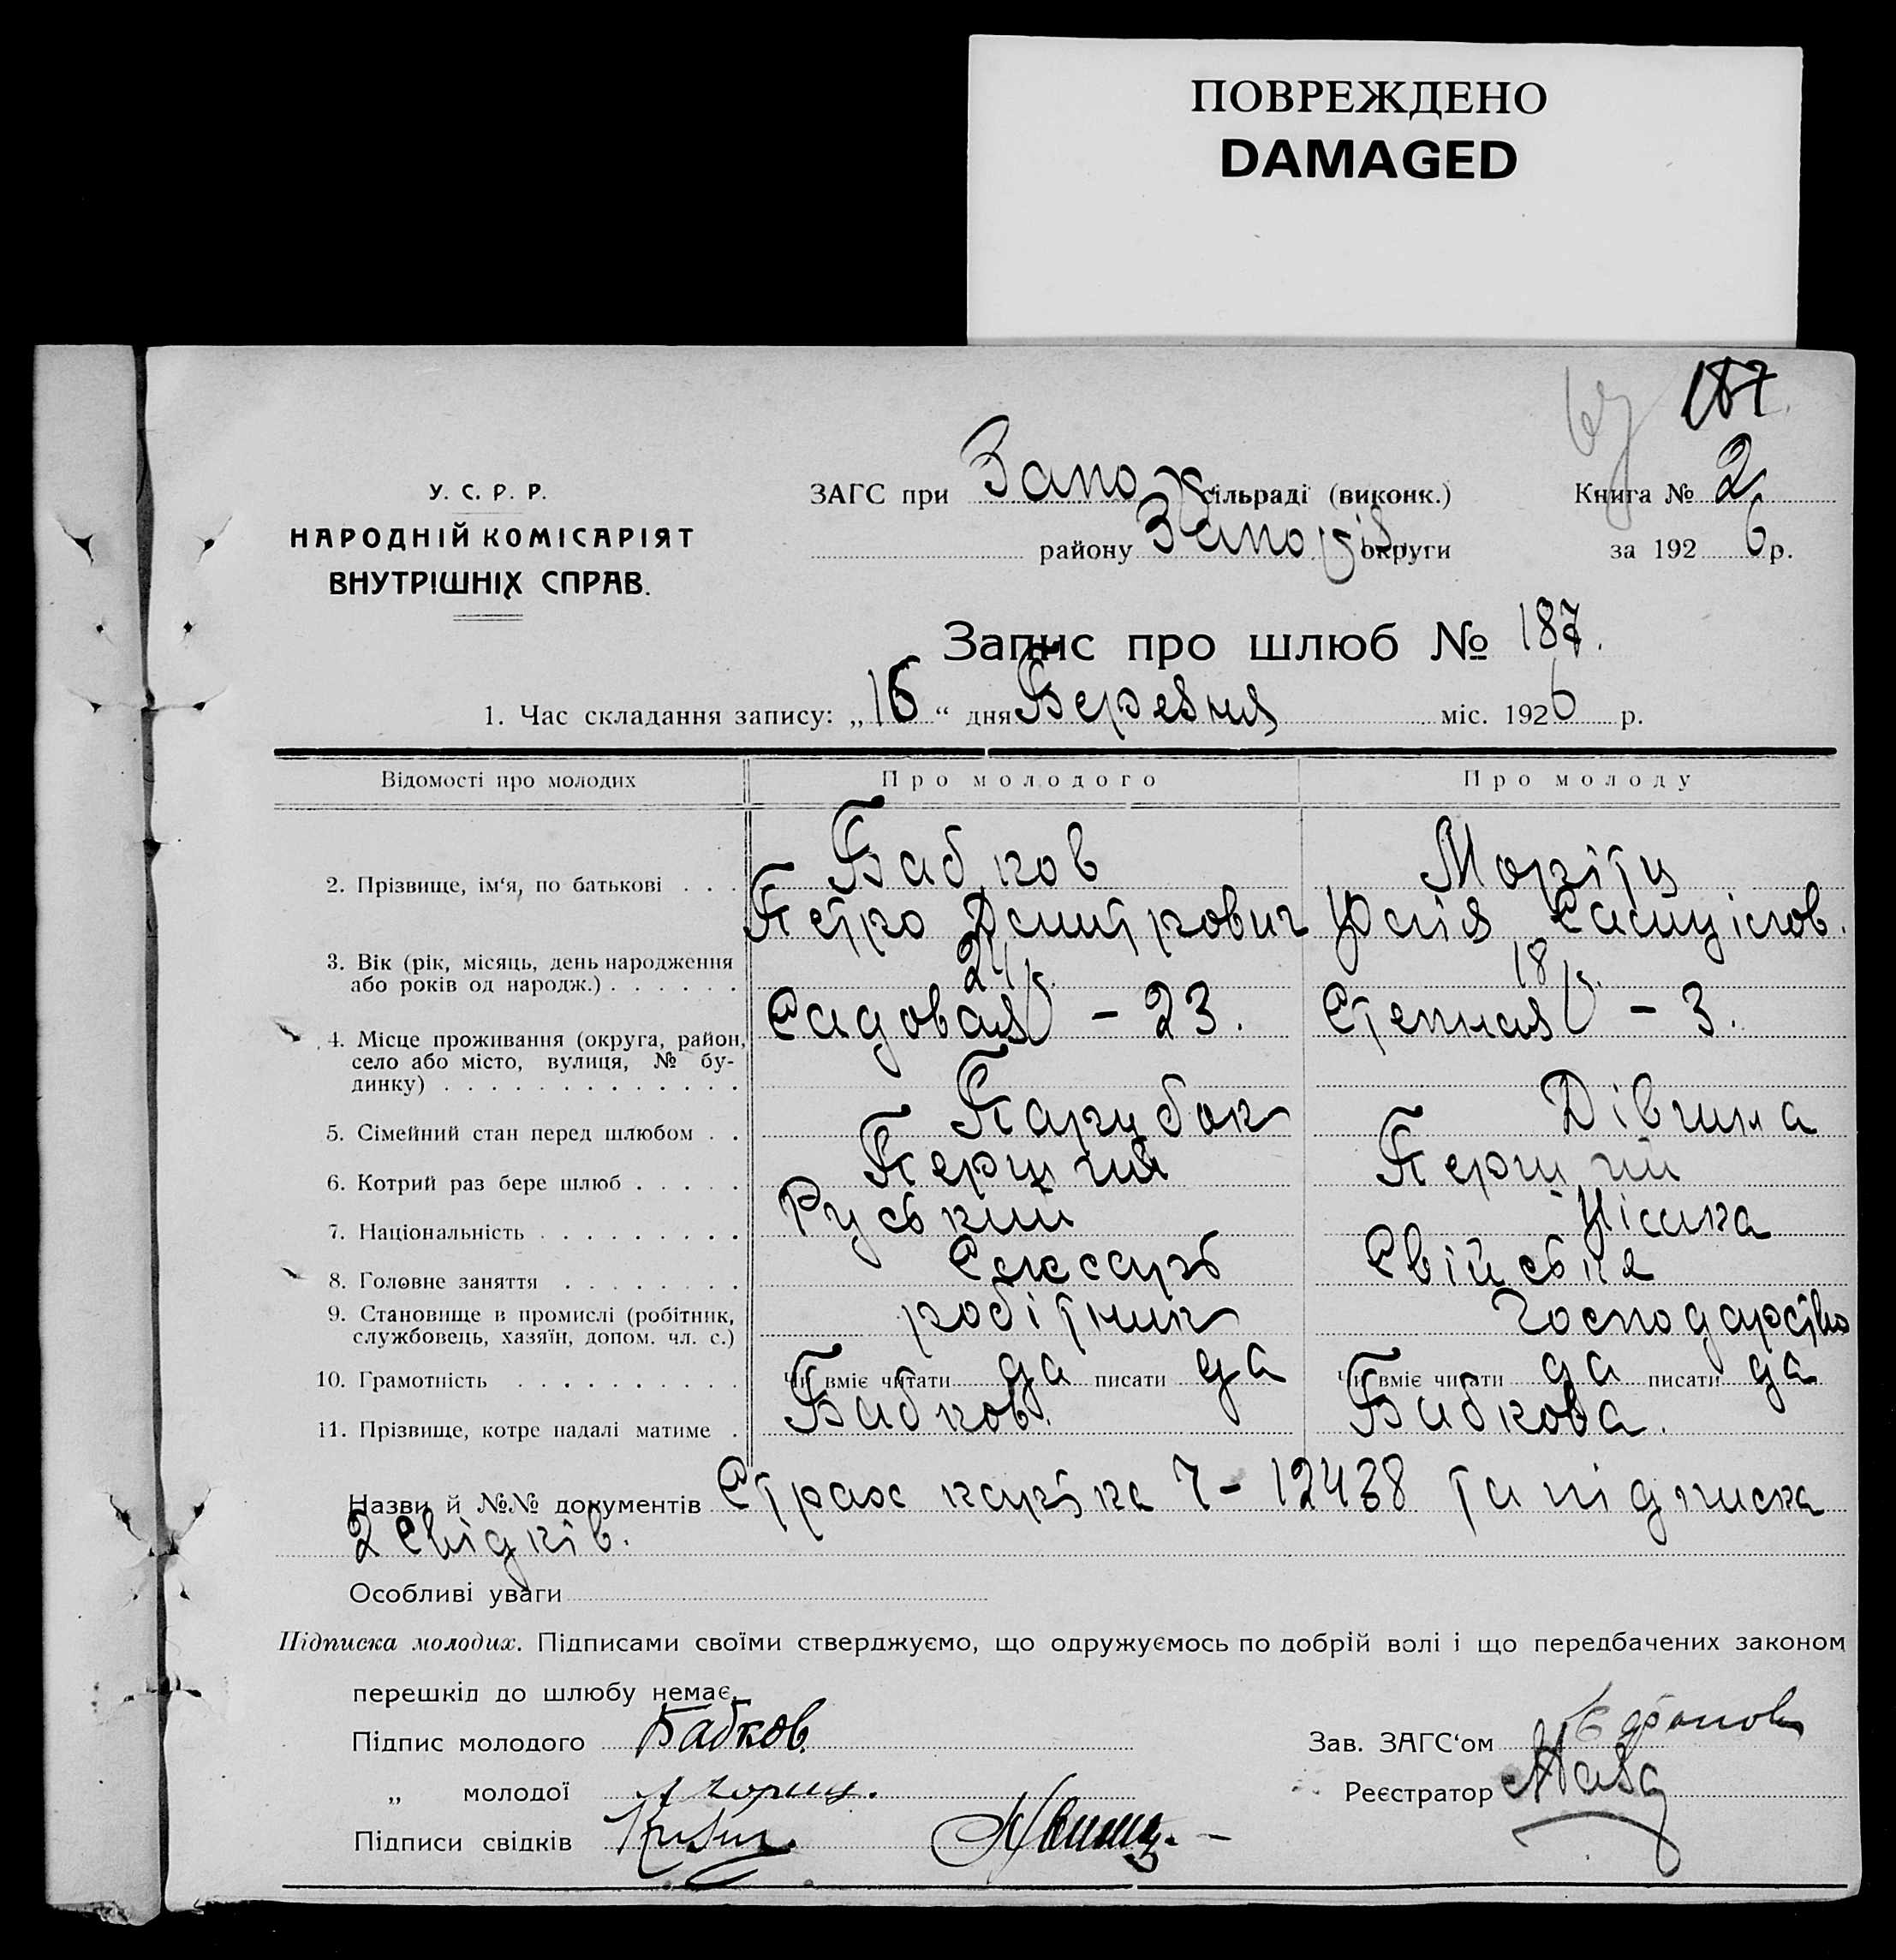 ПОВРЕЖДЕНО
DAMAGED
187.
У. С. Р. Р.
НАРОДНІЙ КОМІСАРІЯТ
ВНУТРІШНІХ СПРАВ.
ЗАГС при Запо сільраді (виконк.)
Книга № 2
району округи
за 1926 р.
Запис про шлюб № 187.
1. Час складання запису: „16“ дня Березня міс. 1926 р.
Відомості про молодих Про молодого Про молоду
2. Прізвище, ім‘я, по батькові . . . Бабков Моріту
Петро Дмитрович Юлія
3. Вік (рік, місяць, день народження
або років од народж.) . . . . . . 24 р. 18 р.
4. Місце проживання (округа, район,
село або місто, вулиця, № бу-
динку) . . . . . . . . . . . . . Садовая – 23. Степная – 3.
5. Сімейний стан перед шлюбом . . Парубок Дівчина
6. Котрий раз бере шлюб . . . . . Перший Перший
7. Національність . . . . . . . . . Руський Німка
8. Головне заняття . . . . . . . Слюсарь Свійське
9. Становище в промислі (робітник,
службовець, хазяїн, допом. чл. с.) робітник господарство
10. Грамотність . . . . . . . . . . Чи вміє читати да писати да Чи вміє читати да писати да
11. Прізвище, котре надалі матиме . Бабков. Бабкова.
Назви й №№ документів Страх картка 7-12438 та підписка
2 свідків.
Особливі уваги
Підписка молодих. Підписами своїми стверджуємо, що одружуємось по добрій волі і що передбачених законом
перешкід до шлюбу немає.
Підпис молодого Бабков.
Зав. ЗАГС‘ом
„ молодої
Реєстратор
Підписи свідків